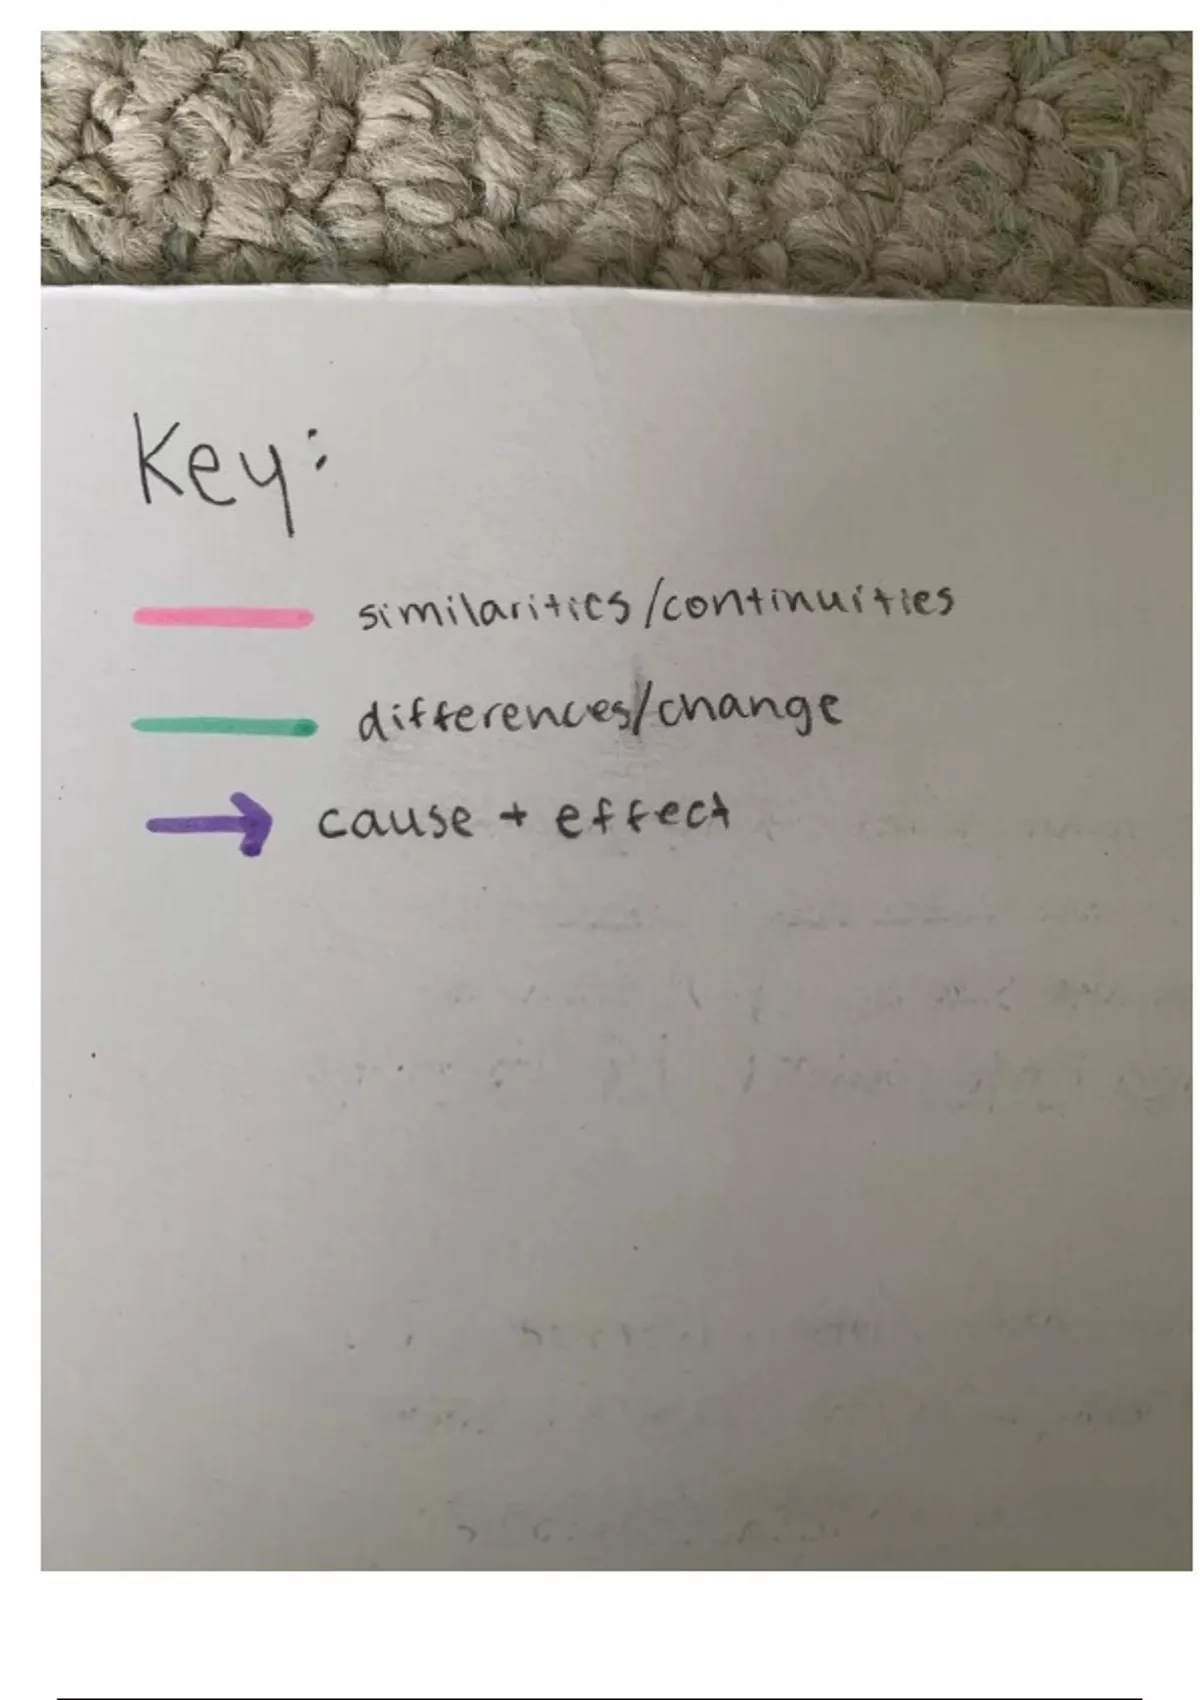 Key:
similarities/continuities
differences/change
cause + effect